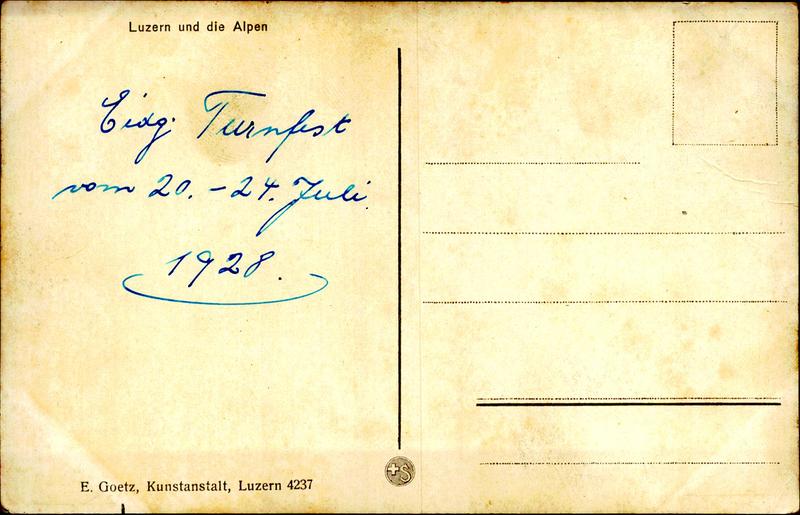 Luzern und die Alpen
Eidg. Turnfest
vom 20. - 24. Juli
1928.
E. Goetz, Kunstanstalt, Luzern 4237
+S